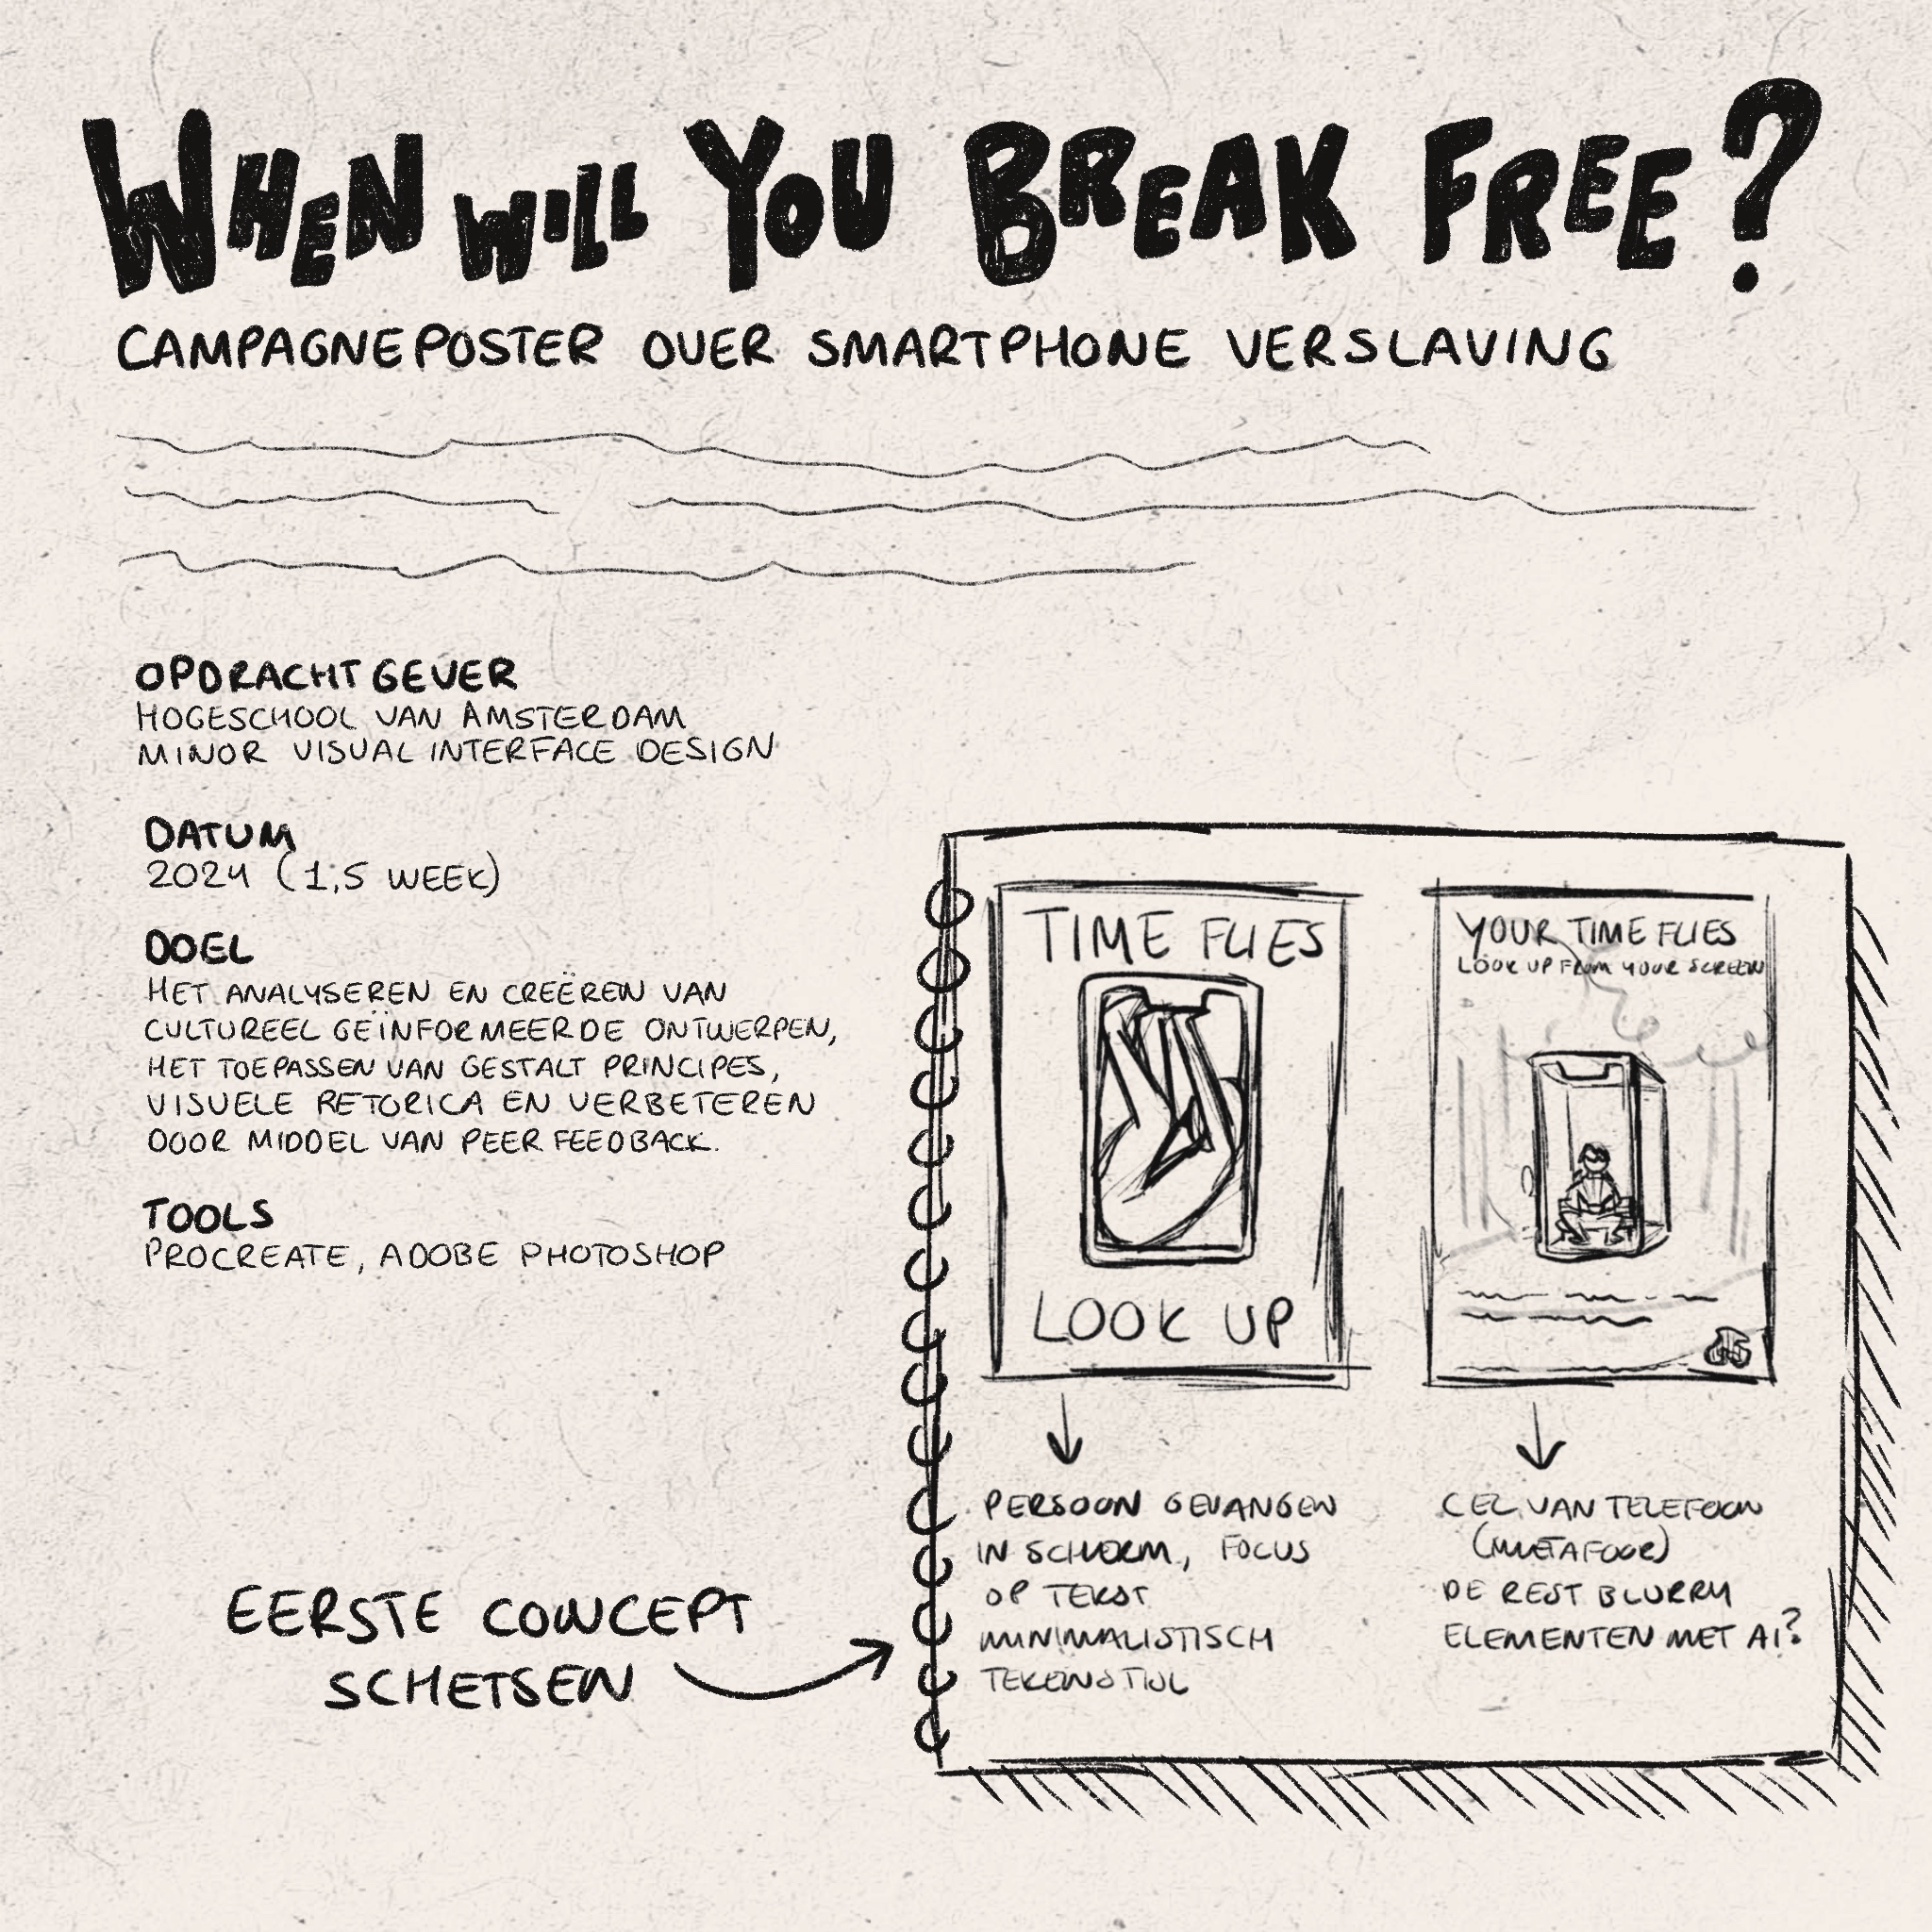 WHEN WILL YOU BREAK FREE?
CAMPAGNEPOSTER OVER SMARTPHONE VERSLAVING
OPDRACHTGEVER
HOGESCHOOL VAN AMSTERDAM
MINOR VISUAL INTERFACE DESIGN
DATUM
2024 (1,5 WEEK)
DOEL
HET ANALYSEREN EN CREËREN VAN
CULTUREEL GEÏNFORMEERDE ONTWERPEN,
HET TOEPASSEN VAN GESTALT PRINCIPES,
VISUELE RETORICA EN VERBETEREN
DOOR MIDDEL VAN PEER FEEDBACK.
TOOLS
PROCREATE, ADOBE PHOTOSHOP
EERSTE CONCEPT
SCHETSEN
TIME FLIES
LOOK UP
PERSOON GEVANGEN
IN SCHERM, FOCUS
OP TEKST
MINIMALISTISCH
TEKENSTIJL
YOUR TIME FLIES
LOOK UP FROM YOUR SCREEN
CEL VAN TELEFOON
(METAFOOR)
DE REST BLURRY
ELEMENTEN MET AI?